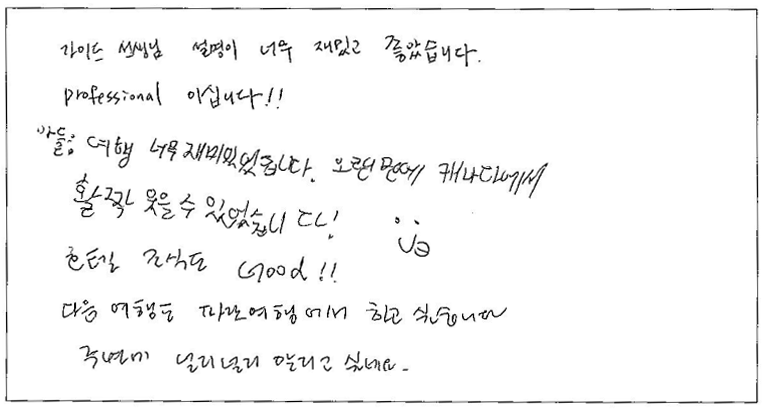 가이드 선생님 설명이 너무 재밌고 좋았습니다.
professional 이십니다!!
아들: 여행 너무 재미있었습니다. 오랜만에 캐나다에서
활짝 웃을 수 있었습니다!
호텔 조식도 Good!!
다음 여행도 파란여행에서 하고 싶습니다
주변에 널리널리 알리고 싶네요.